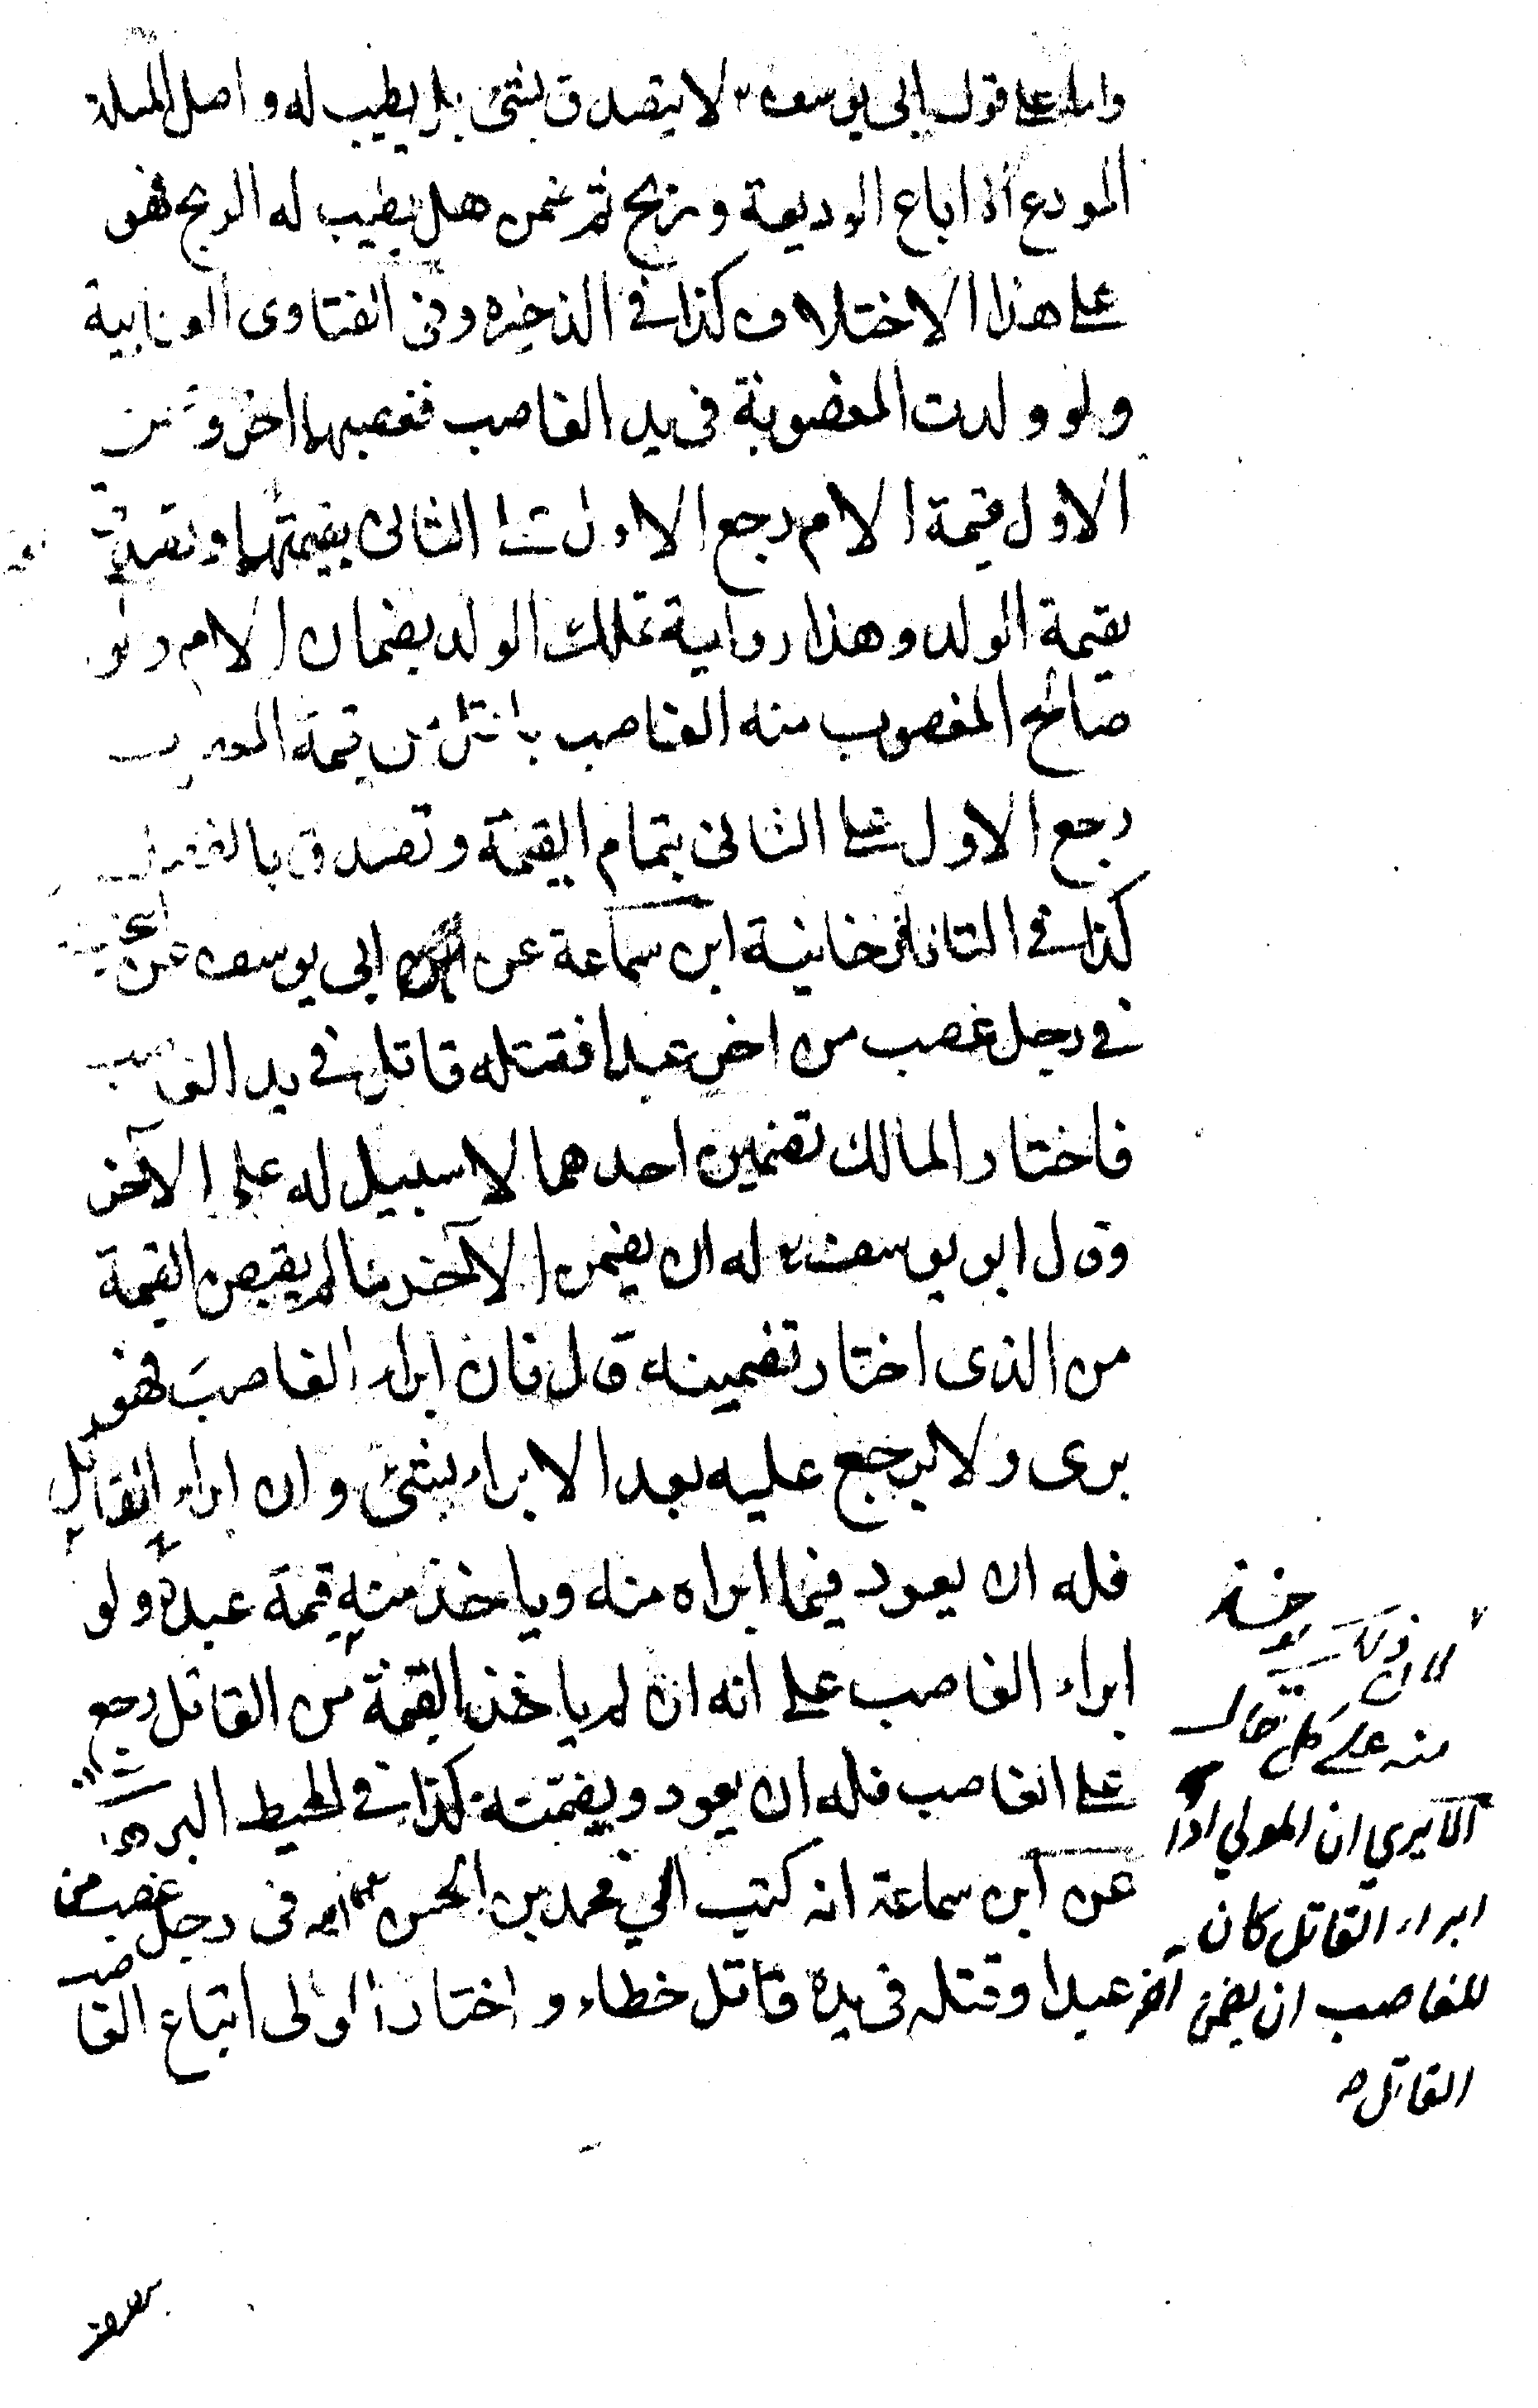 واما على قول ابى يوسف رح لا يتصدق بشئ بل يطيب له واصل المسئلة
المودع اذا باع الوديعة وربح ثم ضمن هل يطيب له الربح فهو
على هذا الاختلاف كذا فى الذخيره وفى الفتاوى العتابية
ولو ولدت المغصوبة فى يد الغاصب فغصبهما اخر وضمن
الاول قيمة الام رجع الاول على الثانى بقيمتهما وتصدق
بقيمة الولد وهذا رواية تملك الولد بضمان الام ولو
صالح المغصوب منه الغاصب باقل من قيمة المغصوب
رجع الاول على الثانى بتمام القيمة وتصدق بالفضل
كذا فى التاتارخانية ابن سماعة عن ابى يوسف عن ابى حنيفة
فى رجل غصب من اخر عبدا فقتله قاتل فى يد الغاصب
فاختار المالك تضمين احدهما لا سبيل له على الآخر
وقال ابو يوسف رح له ان يضمن الآخر ما لم يقبض القيمة
من الذى اختار تضمينه قال فان ابراء الغاصب فهو
برى ولا يرجع عليه بعد الابراء بشئ وان ابراء القاتل
فله ان يعود فيما ابراه منه وياخذ منه قيمة عبده ولو
ابراء الغاصب على انه ان لم ياخذ القيمة من القاتل رجع
على الغاصب فله ان يعود ويضمنه كذا فى المحيط البرهانى
عن ابن سماعة انه كتب الي محمد بن الحسن رحمهما الله فى رجل غصب من
آخر عبدا وقتله فى يده قاتل خطاء واختار المولى اتباع الغاصب
لان ذلك يوخذ
منه على كل حال
الا يري ان المولي اذا
ابراء القاتل كان
للغاصب ان يضمن
القاتل